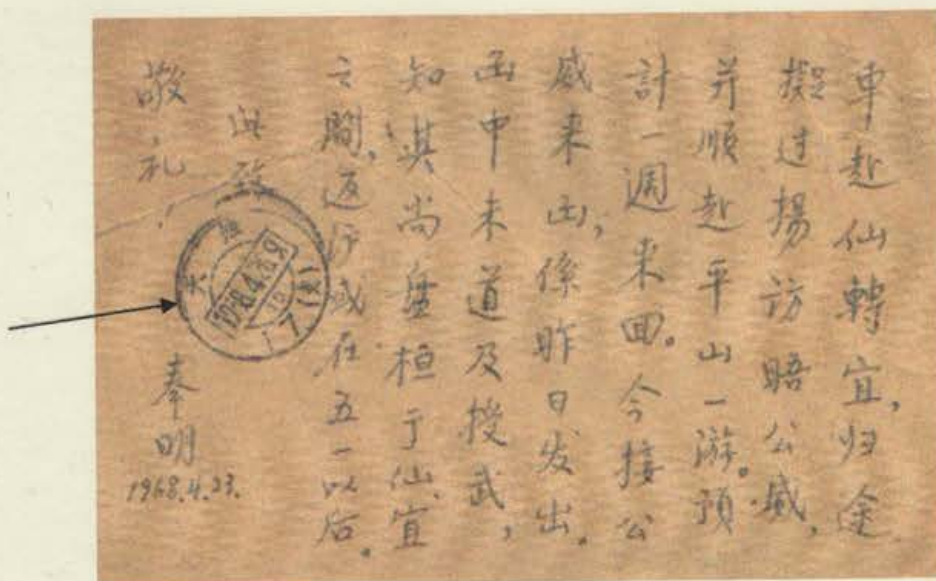 車赴仙轉宜,归途
擬过揚訪晤公威,
并順赴平山一游。预
計一週来回。今接公
威来函,係昨日发出。
函中未道及授武,
知其尚盘桓于仙、宜
之間,返沪或在五一以后。
此致
敬礼!
奉明
1968.4.23.
上海
1968.4.23